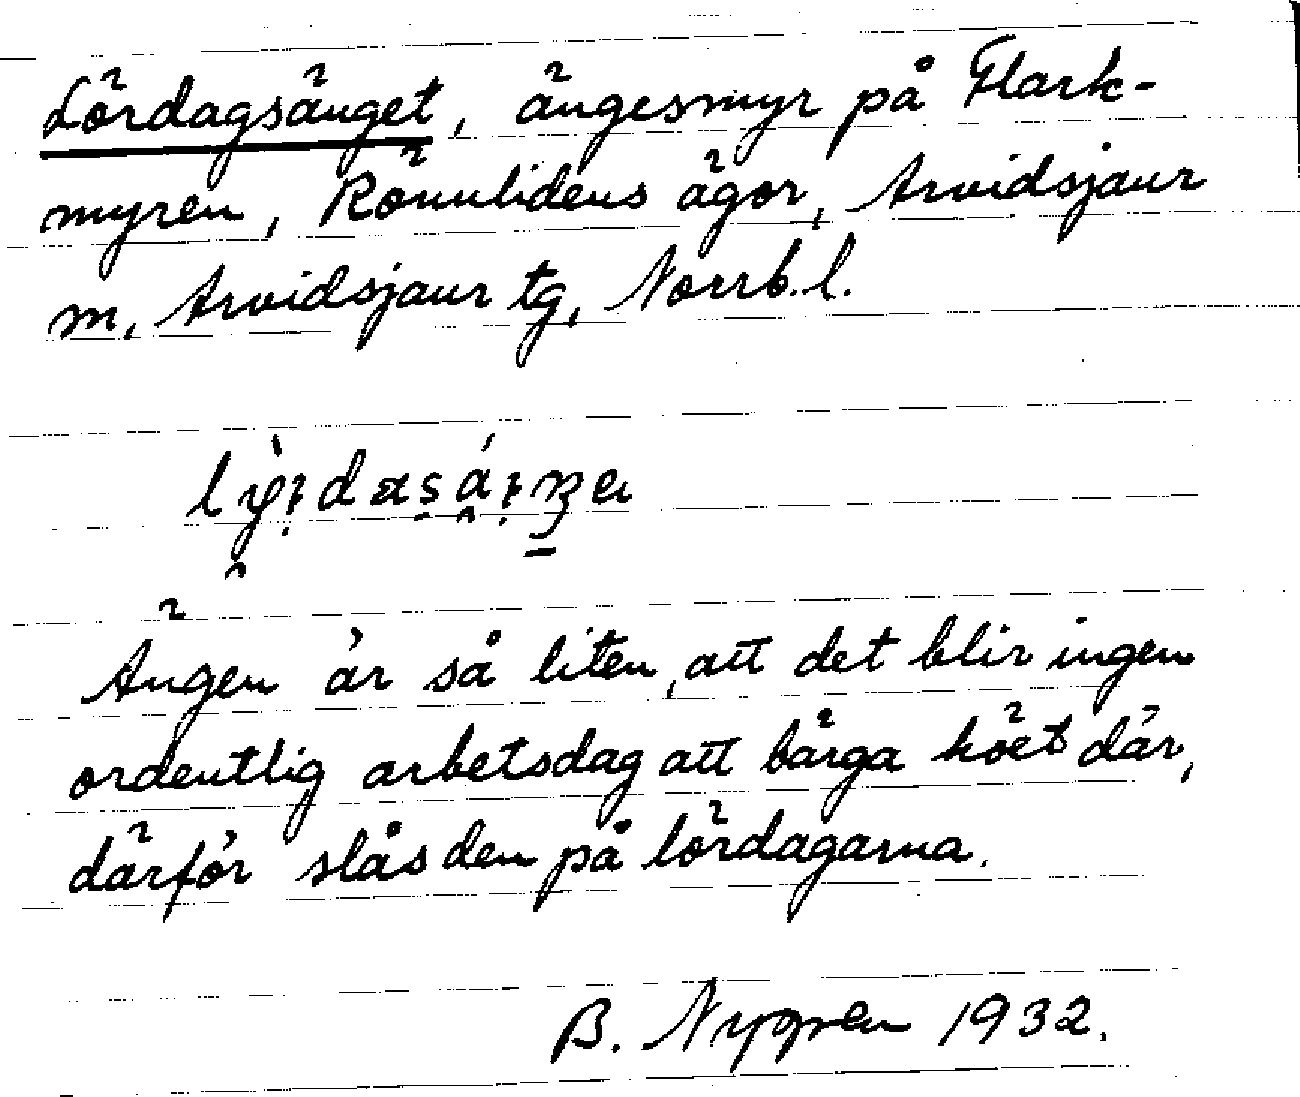 Lördagsänget, ängesmyr på Flark-
myren, Rönnlidens ägor, Arvidsjaur
m, Arvidsjaur tg, Norrb. l.
Ängen är så liten, att det blir ingen
ordentlig arbetsdag att bärga höet där,
därför slås den på lördagarna.
B. Nygren 1932.